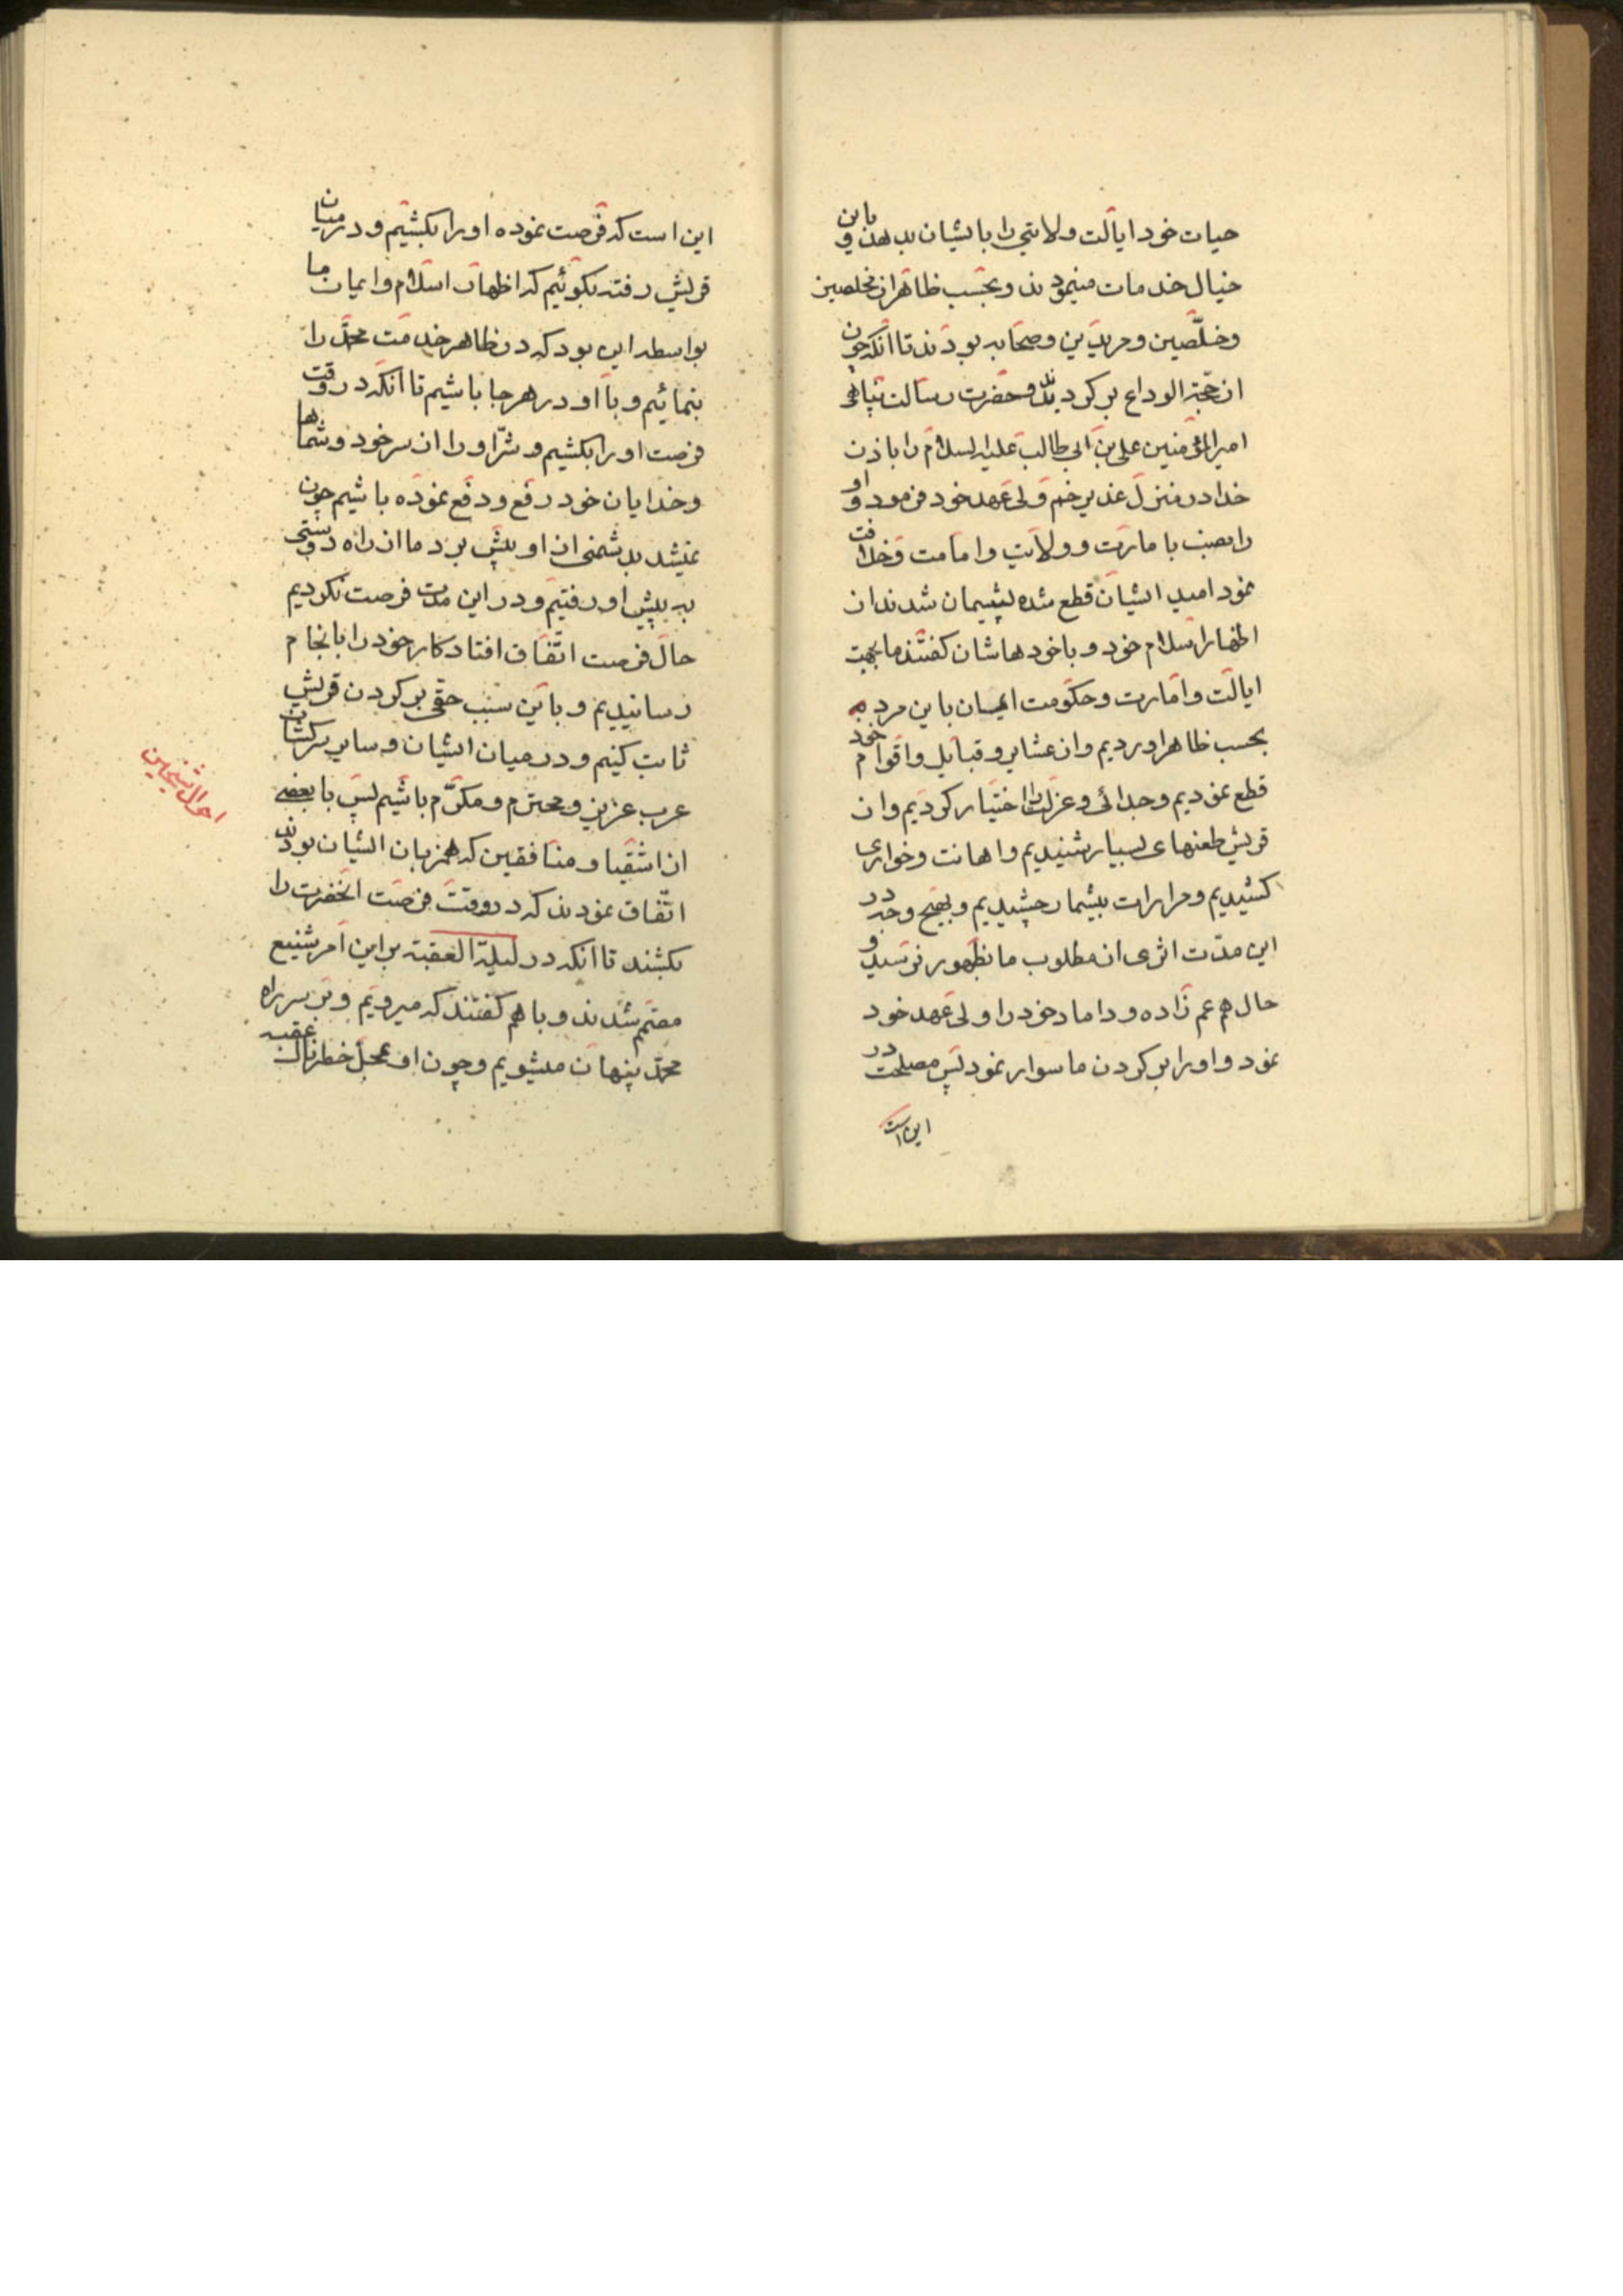 حیات خود ایالت ولایتی را بایشان بدهد و باین
خیال خدمات مینمودند و بحسب ظاهر از مخلصین
و خلّصین و مریدین و صحابه بودند تا آنکه چون
از حجّة الوداع برگردیدند و حضرت رسالت پناهی
امیرالمؤمنین علی بن ابی طالب علیه السلام را باذن
خدا در منزل غدیر خم ولی عهد خود فرمود و او
را نصب بامارت و ولایت و امامت و خلافت
نمود امید ایشان قطع شده پشیمان شدند از
اظهار اسلام خود و با خودهاشان گفتند ما بجهت
ایالت و امارت و حکومت ایمان باین مرد
بحسب ظاهر اوردیم و از عشایر و قبایل و اقوام خود
قطع نمودیم و جدائی و عزلت را اختیار کردیم و از
قریش طعنهای بسیار شنیدیم و اهانت و خواری
کشیدیم و مرارات بیشمار چشیدیم و بهیچ وجه در
این مدّت اثری از مطلوب ما بظهور نرسید و
حال هم عم زاده و داماد خود را ولی عهد خود
نمود و او را بر گردن ما سوار نمود پس مصلحت در
این است
این است که فرصت نموده او را بکشیم و در میان
قریش رفته بگوئیم که اظهار اسلام و ایمان ما
بواسطه این بود که در ظاهر خدمت محمّد را
بنمائیم و با او در هر جا باشیم تا آنکه در وقت
فرصت او را بکشیم و شرّ او را از سر خود و شماها
و خدایان خود رفع و دفع نموده باشیم چون
نمیشد بدشمنی از او پیش برد ما از راه دوستی
به پیش او رفتیم و در این مدت فرصت نکردیم
حال فرصت اتّفاق افتاد کار خود را بانجام
رسانیدیم و باین سبب حقی بر گردن قریش
ثابت کنیم و در میان ایشان و سایر سرکشان
عرب عزیز و محترم و مکرّم باشیم پس با بعضی
از اشقیا و منافقین که همزبان ایشان بودند
اتّفاق نمودند که در وقت فرصت انحضرت را
بکشند تا آنکه در لیلة العقبه بر این امر شنیع
مصمّم شدند و با هم گفتند که میرویم و بر سر راه
محمّد پنهان میشویم و چون او بمحل خطرناک عقبه
احوال شیخین